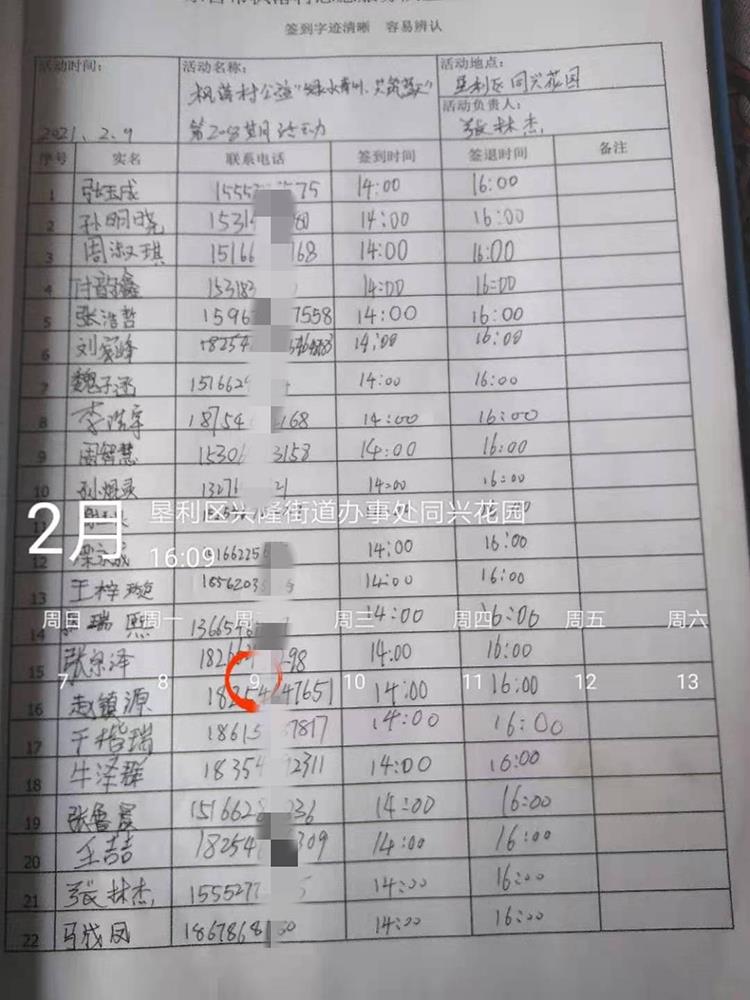 签到字迹清晰 容易辨认
活动时间: 活动名称: 活动地点:
枫落村公益"绿水青山、共筑蓝天" 垦利区同兴花园
活动负责人:
2021.2.9 第208期活动 张林杰
序号 实名 联系电话 签到时间 签退时间 备注
1 张玉成 1555 575 14:00 16:00
2 孙明晓 1531 80 14:00 16:00
3 周淑琪 1516 168 14:00 16:00
4 付韵鑫 153183 14:00 16:00
5 张浩哲 1596 7558 14:00 16:00
6 14:00 16:00
7 魏子涵 1516629 14:00 16:00
8 李浩宇 18754 168 14:00 16:00
9 周智慧 15306 3158 14:00 16:00
10 1327 21 14:00 16:00
2月 垦利区兴隆街道办事处同兴花园
16:09
12 5166225 14:00 16:00
13 王梓璇 1856203 14:00 16:00
周日 周一 周三 周四 周五 周六
14 瑞熙 136654 14:00 16:00
15 张宗泽 182 98 14:00 16:00
7 8 9 10 11 12 13
16 赵镇源 18254 47651 14:00 16:00
17 于楷瑞 18615 7817 14:00 16:00
18 牛泽群 18354 2311 14:00 16:00
19 张鲁晨 1516628 036 14:00 16:00
20 王喆 18254 309 14:00 16:00
21 张林杰 155527 5 14:00 16:00
22 马成凤 1867868 14:00 16:00